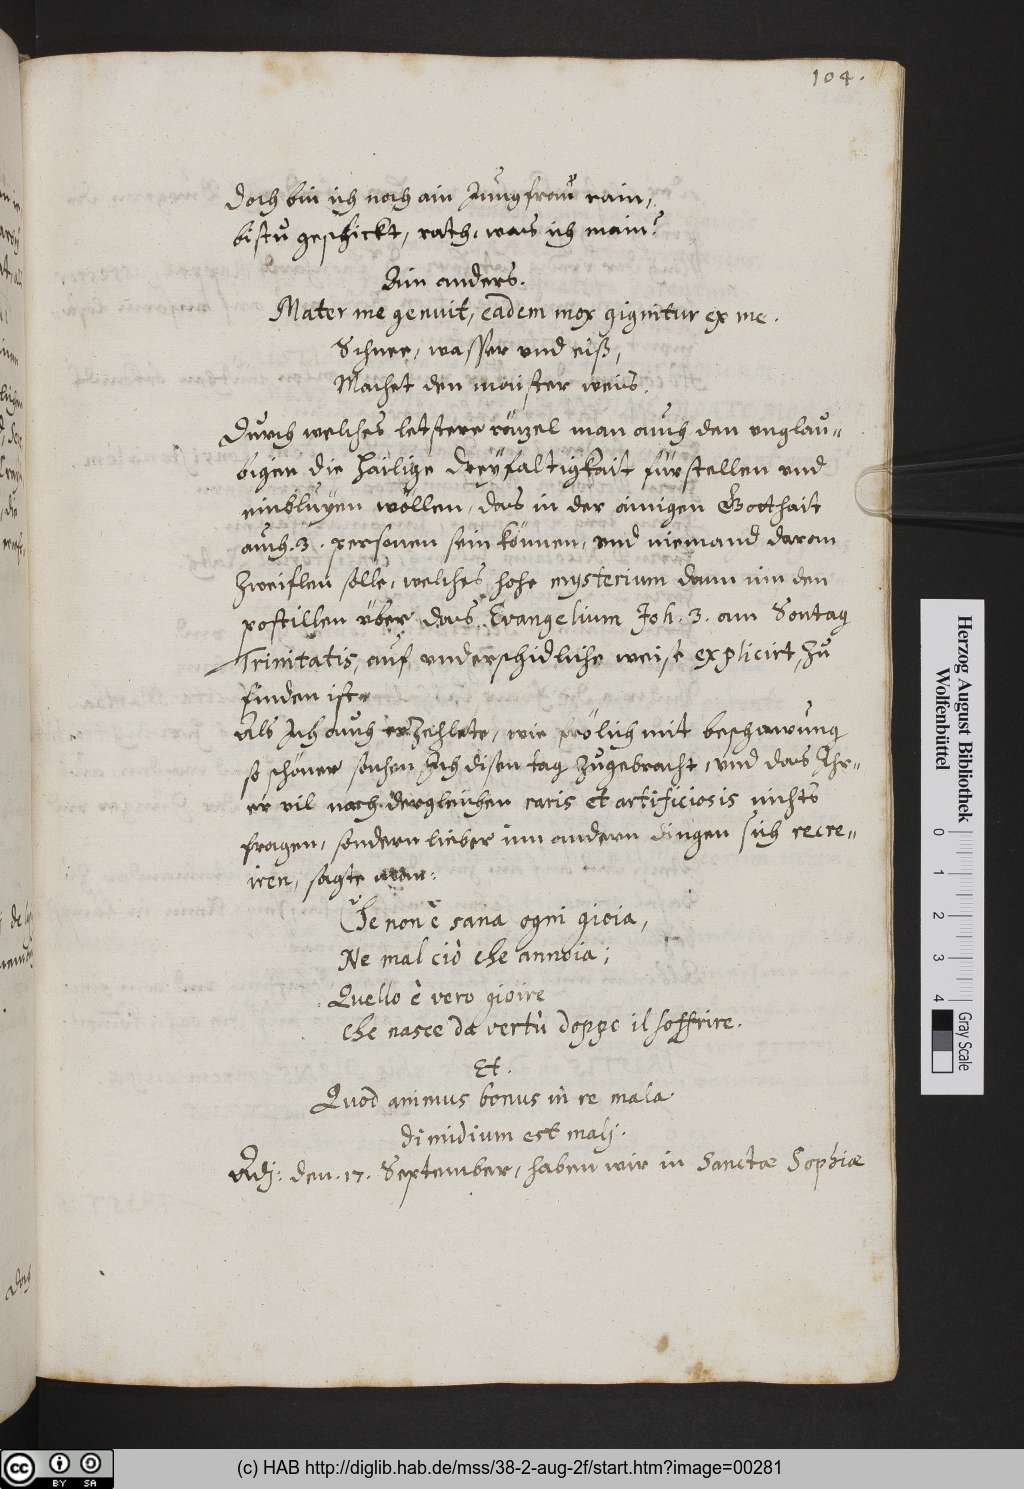 104.
Doch bin ich noch ain Jungfraw rain,
bistu geschickt, rath, was ich main?
Ain anders.
Mater me genuit, eadem mox gignitur ex me.
Schnee, wasser und eiß,
Machet den maister weis.
Durch welches letstere räzel man auch den unglau=
bigen die Hailige Dreyfaltigkait fürstellen und
einbluyen wöllen, das in der ainigen Gotthait
auch .3. personen sein können, und niemand daran
zweiflen solle, welches hohe mysterium dann inn den
postillen über das Evangelium Joh. 3. am Sontag
Trinitatis, auf underschidliche weise explicirt, zu
finden ist.
Als Ich auch erzehlete, wie frölich mit beschawung
so schöner sachen Ich disen tag zugebracht, und das Ihr=
er vil nach dergleichen raris et artificiosis nichts
fragen, sondern lieber inn andern dingen sich recre=
iren, sagte man:
Che non è sana ogni gioia,
Ne mal ciò che annoia;
Quello è vero gioire
che nasce da vertù doppo il soffrire.
Et.
Quod animus bonus in re mala
dimidium est malj.
Adj: den .17. September, haben wir in Sanctæ Sophiæ
Herzog August Bibliothek
Wolfenbüttel
0 1 2 3 4
Gray Scale
cc BY SA
(c) HAB http://diglib.hab.de/mss/38-2-aug-2f/start.htm?image=00281